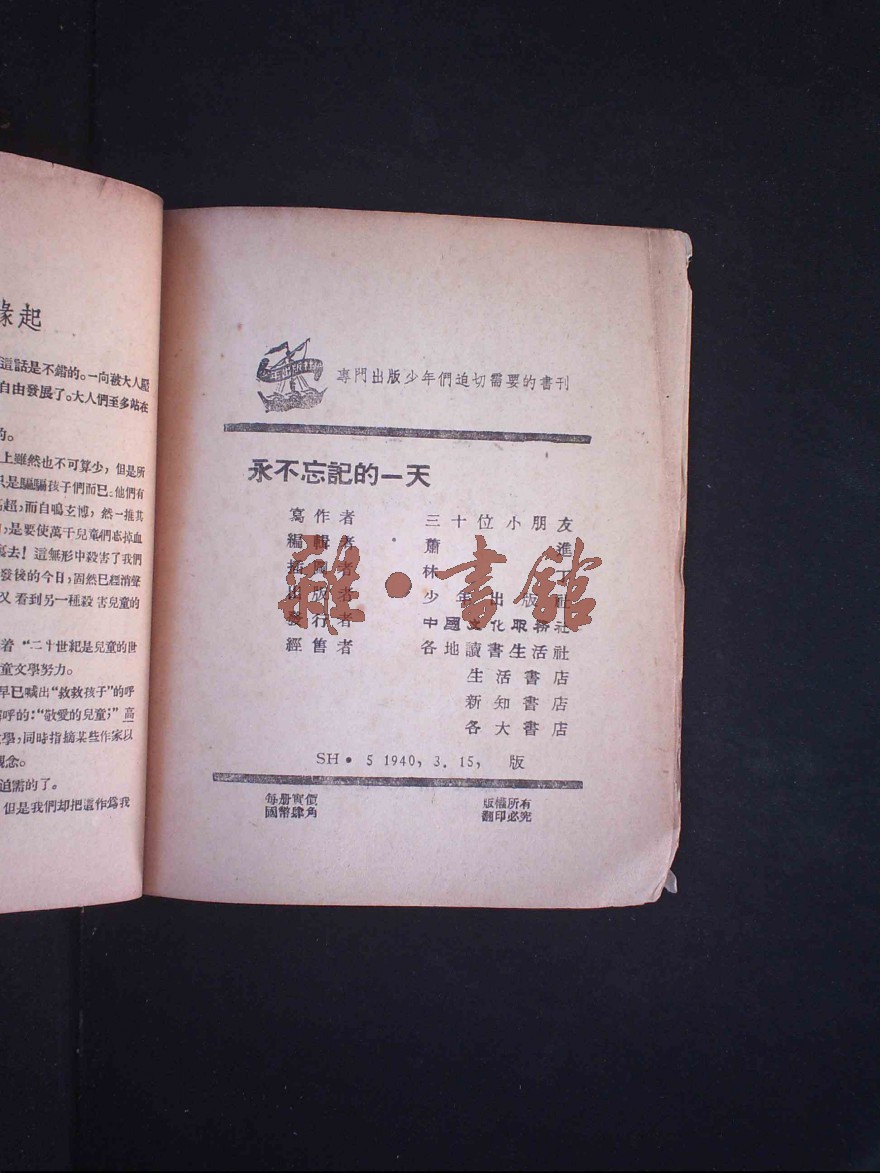 緣起
這話是不錯的。一向被大人壓
自由發展了。大人們至多站在
的。
上雖然也不可算少，但是所
只是騙騙孩子們而已。他們有
高超，而自鳴玄博，然一推其
，是要使萬千兒童們忘掉血
裏去！這無形中殺害了我們
發後的今日，固然已經消聲
又看到另一種殺害兒童的
着“二十世紀是兒童的世
童文學努力。
早已喊出“救救孩子”的呼
呼的：“敬愛的兒童；”高
學，同時指摘某些作家以
觀念。
迫需的了。
但是我們却把這作爲我
少年出版社
專門出版少年們迫切需要的書刊
永不忘記的一天
寫作者 三十位小朋友
編輯者 蕭進
插圖者 林
出版者 少年出版社
發行者 中國文化服務社
經售者 各地讀書生活社
生活書店
新知書店
各大書店
SH·5 1940，3.15， 版
每册實價 版權所有
國幣肆角 翻印必究
雜·書館